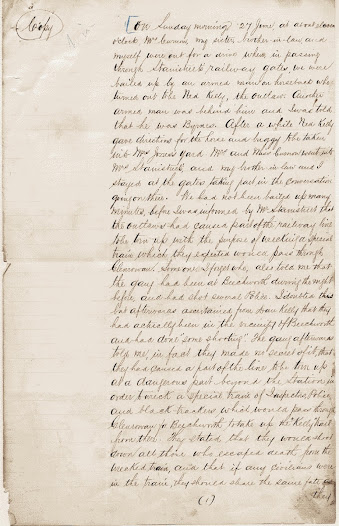 Copy
On Sunday morning 27 June, at about eleven
o'clock Mrs Curnow, my sister, brother-in-law and
myself were out for a drive when in passing
through Stanistreet's railway gates, we were
bailed up by an armed man on horseback who
turned out to be Ned Kelly, the outlaw. Another
armed man was behind him and I was told
that he was Byrnes. After a while Ned Kelly
gave directions for the horse and buggy to be taken
into Mrs Jones's yard. Mrs and Miss Curnow went into
Mrs Stanistreet's and my brother-in-law and I
stayed at the gates, taking part in the conversation
going on there. We had not been bailed up many
minutes before I was informed by Mr Stanistreet that
the outlaws had caused part of the railway line
to be torn up with the purpose of wrecking a special
train which they expected would pass through
Glenrowan. Someone I forget who, also told me that
the gang had been at Beechworth during the night
before, and had shot several Police. I doubted this
but afterwards ascertained from Joe Kelly that they
had actually been in the vicinity of Beechworth
and had done "some shooting". The gang afterwards
told me, in fact they made no secret of it, that
they had caused a part of the line to be torn up
at a dangerous part beyond the Station in
order to wreck a special train of Inspectors, Police,
and black trackers which would pass through
Glenrowan to Beechworth to take up the Kelly trail
from there. They stated that they would shoot
down all those who escaped death from the
wrecked train, and that if any civilians were
in the train, they should share the same fate
they
(1)